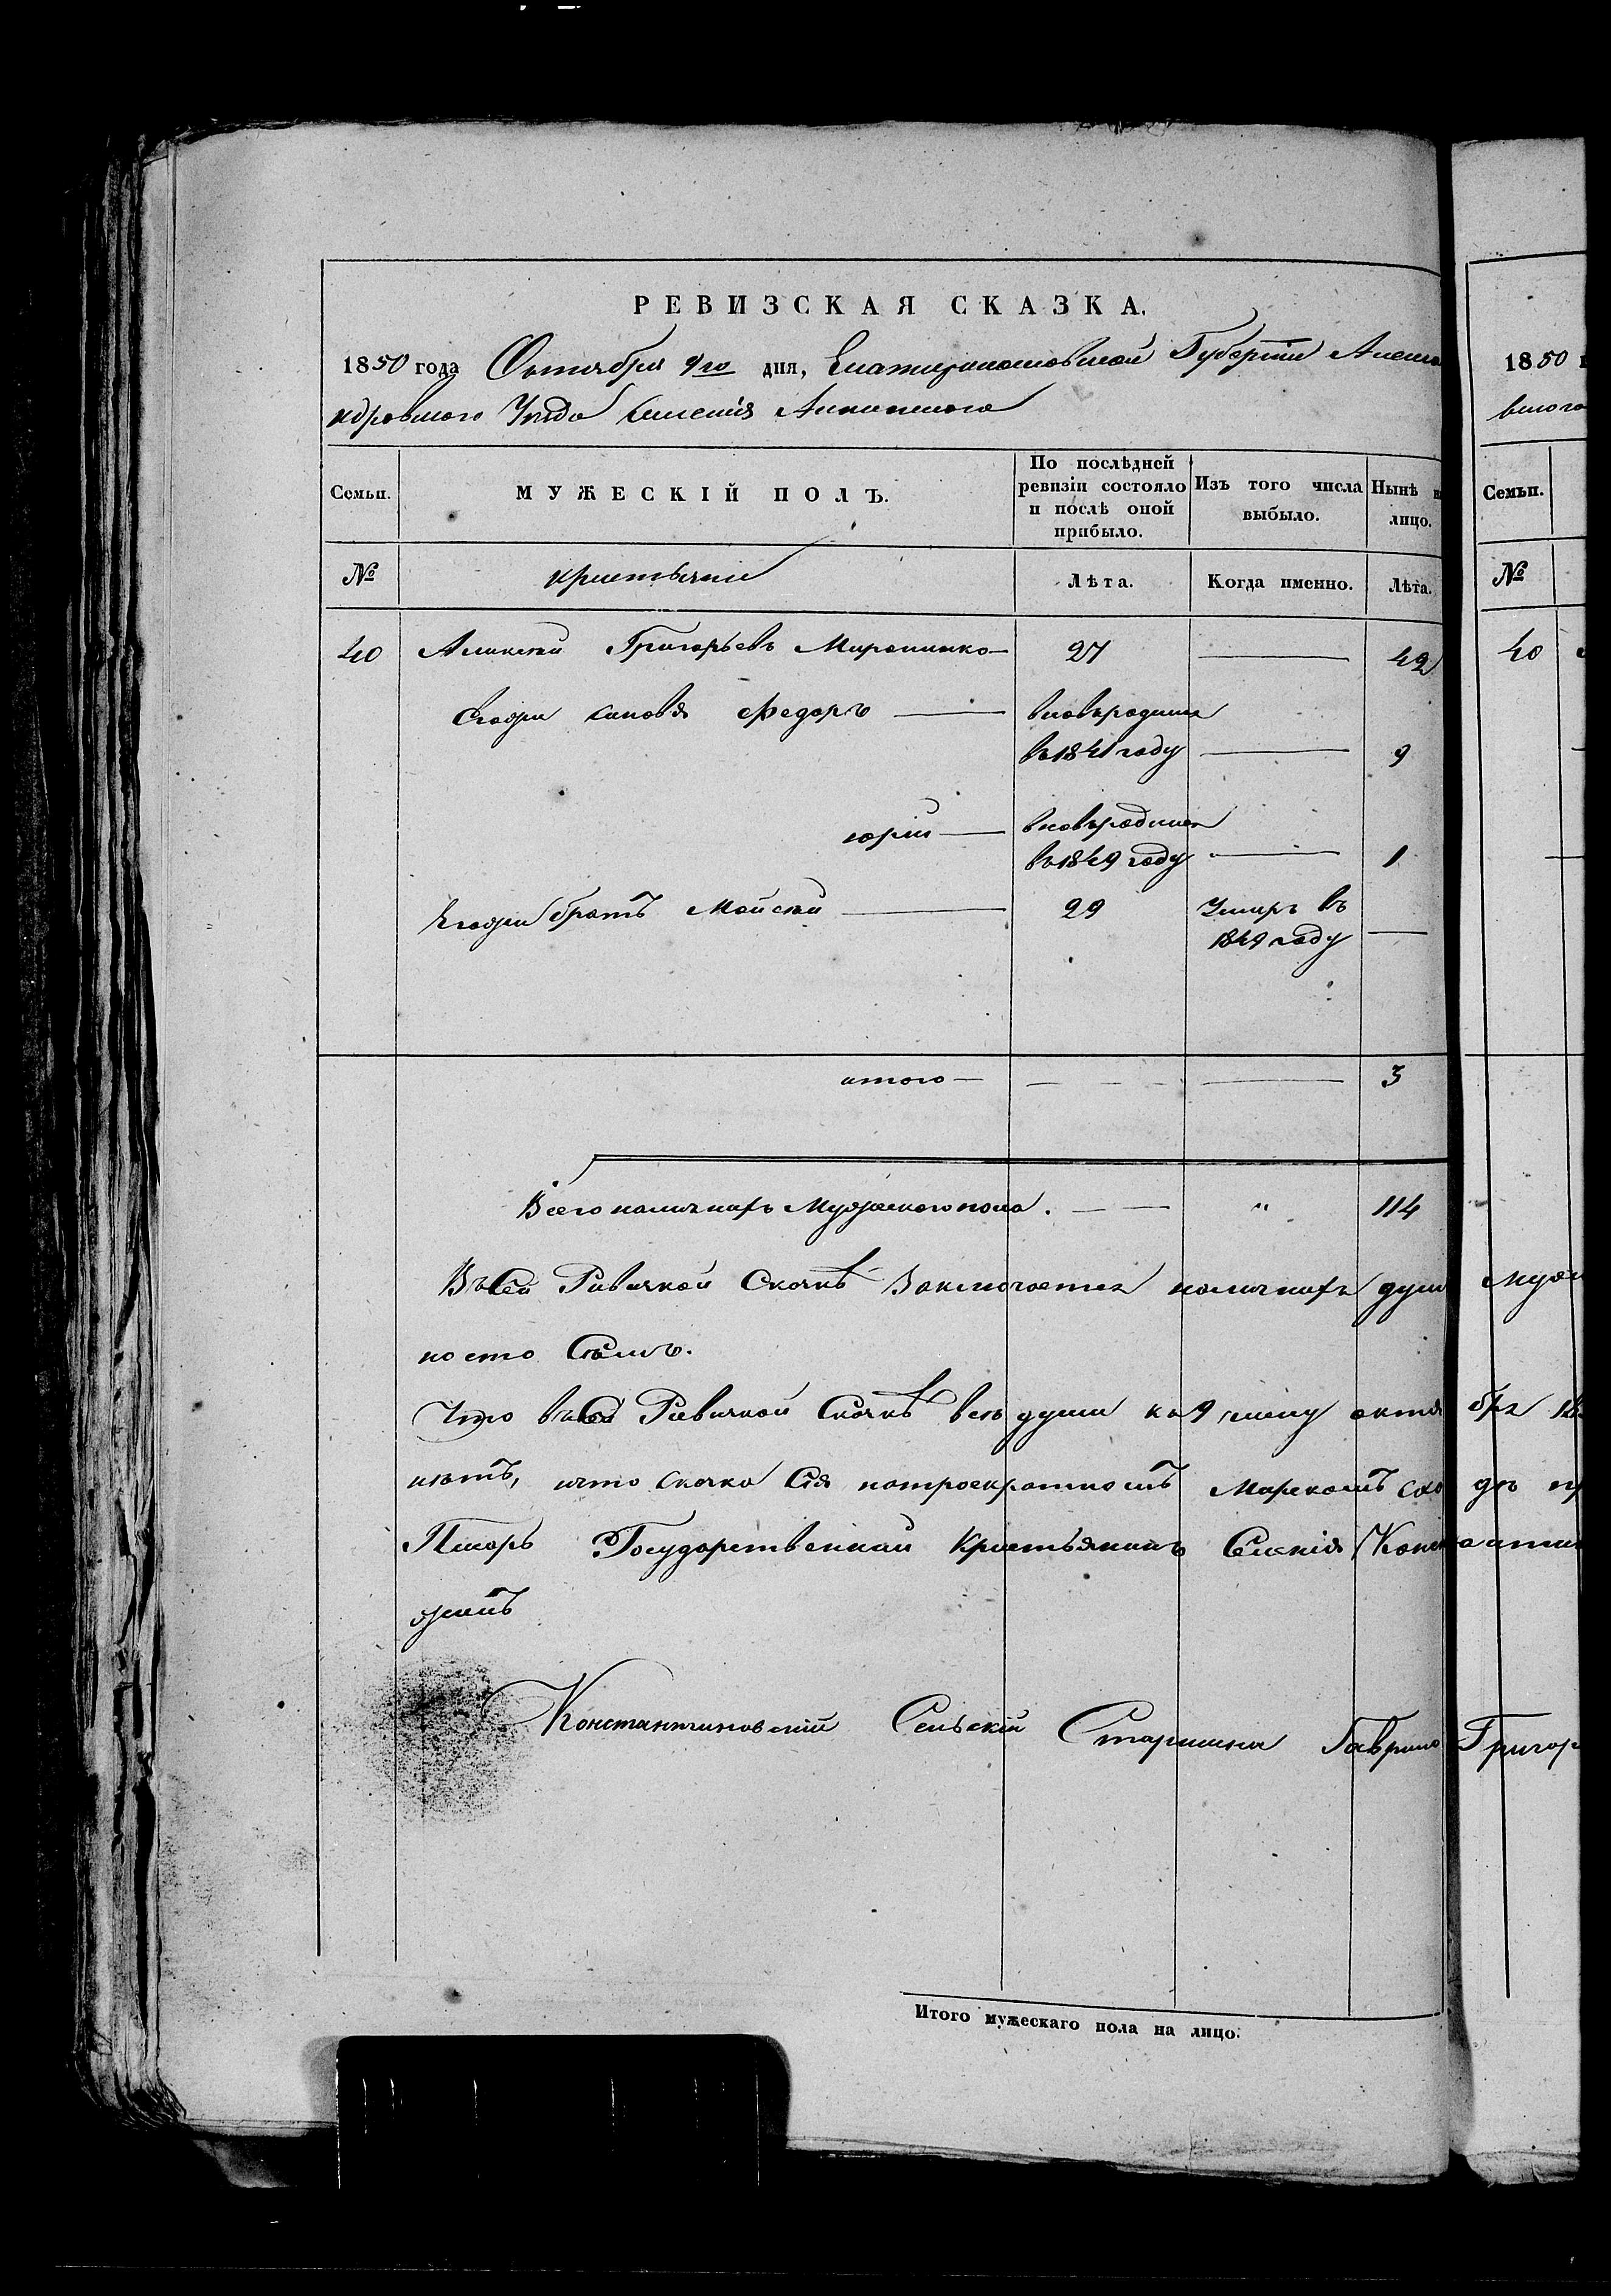 РЕВИЗСКАЯ СКАЗКА.
1850 года Октября 9го дня, Екатеринославской Губернии Алекса
ндровского Уезда Селения
Семьи.
МУЖЕСКІЙ ПОЛЪ.
По послѣдней ревизіи состояло и послѣ оной прибыло.
Изъ того числа выбыло.
Нынѣ н лицо.
№
крестьяне
Лѣта.
Когда именно.
Лѣта.
40 Алексей Григорьевъ Мироненко 27 — 42
Егоже синовя Федоръ — вновьродился
въ 1841 году — 9
юрій — вновьродился
въ 1849 году — 1
Егоже братъ Мойсей — 29 Умеръ въ
1849 году —
итого — — — 3
Всего наличнихъ Мужескогопола. — — " 114
Въсей Ревизкой Сказкѣ Заключается наличнихъ душ муже
Что въсей Ревизкой Сказкѣ всѣ души къ 9 октя бря 185
что сказка Сія схо дъ пр
Государственний Крестьянинъ Селенія Конс анти
Константиновскій Сельскій Старшина Гаврило Григор
Итого мужескаго пола на лицо:
1850 г
вского
Семьи.
№
40